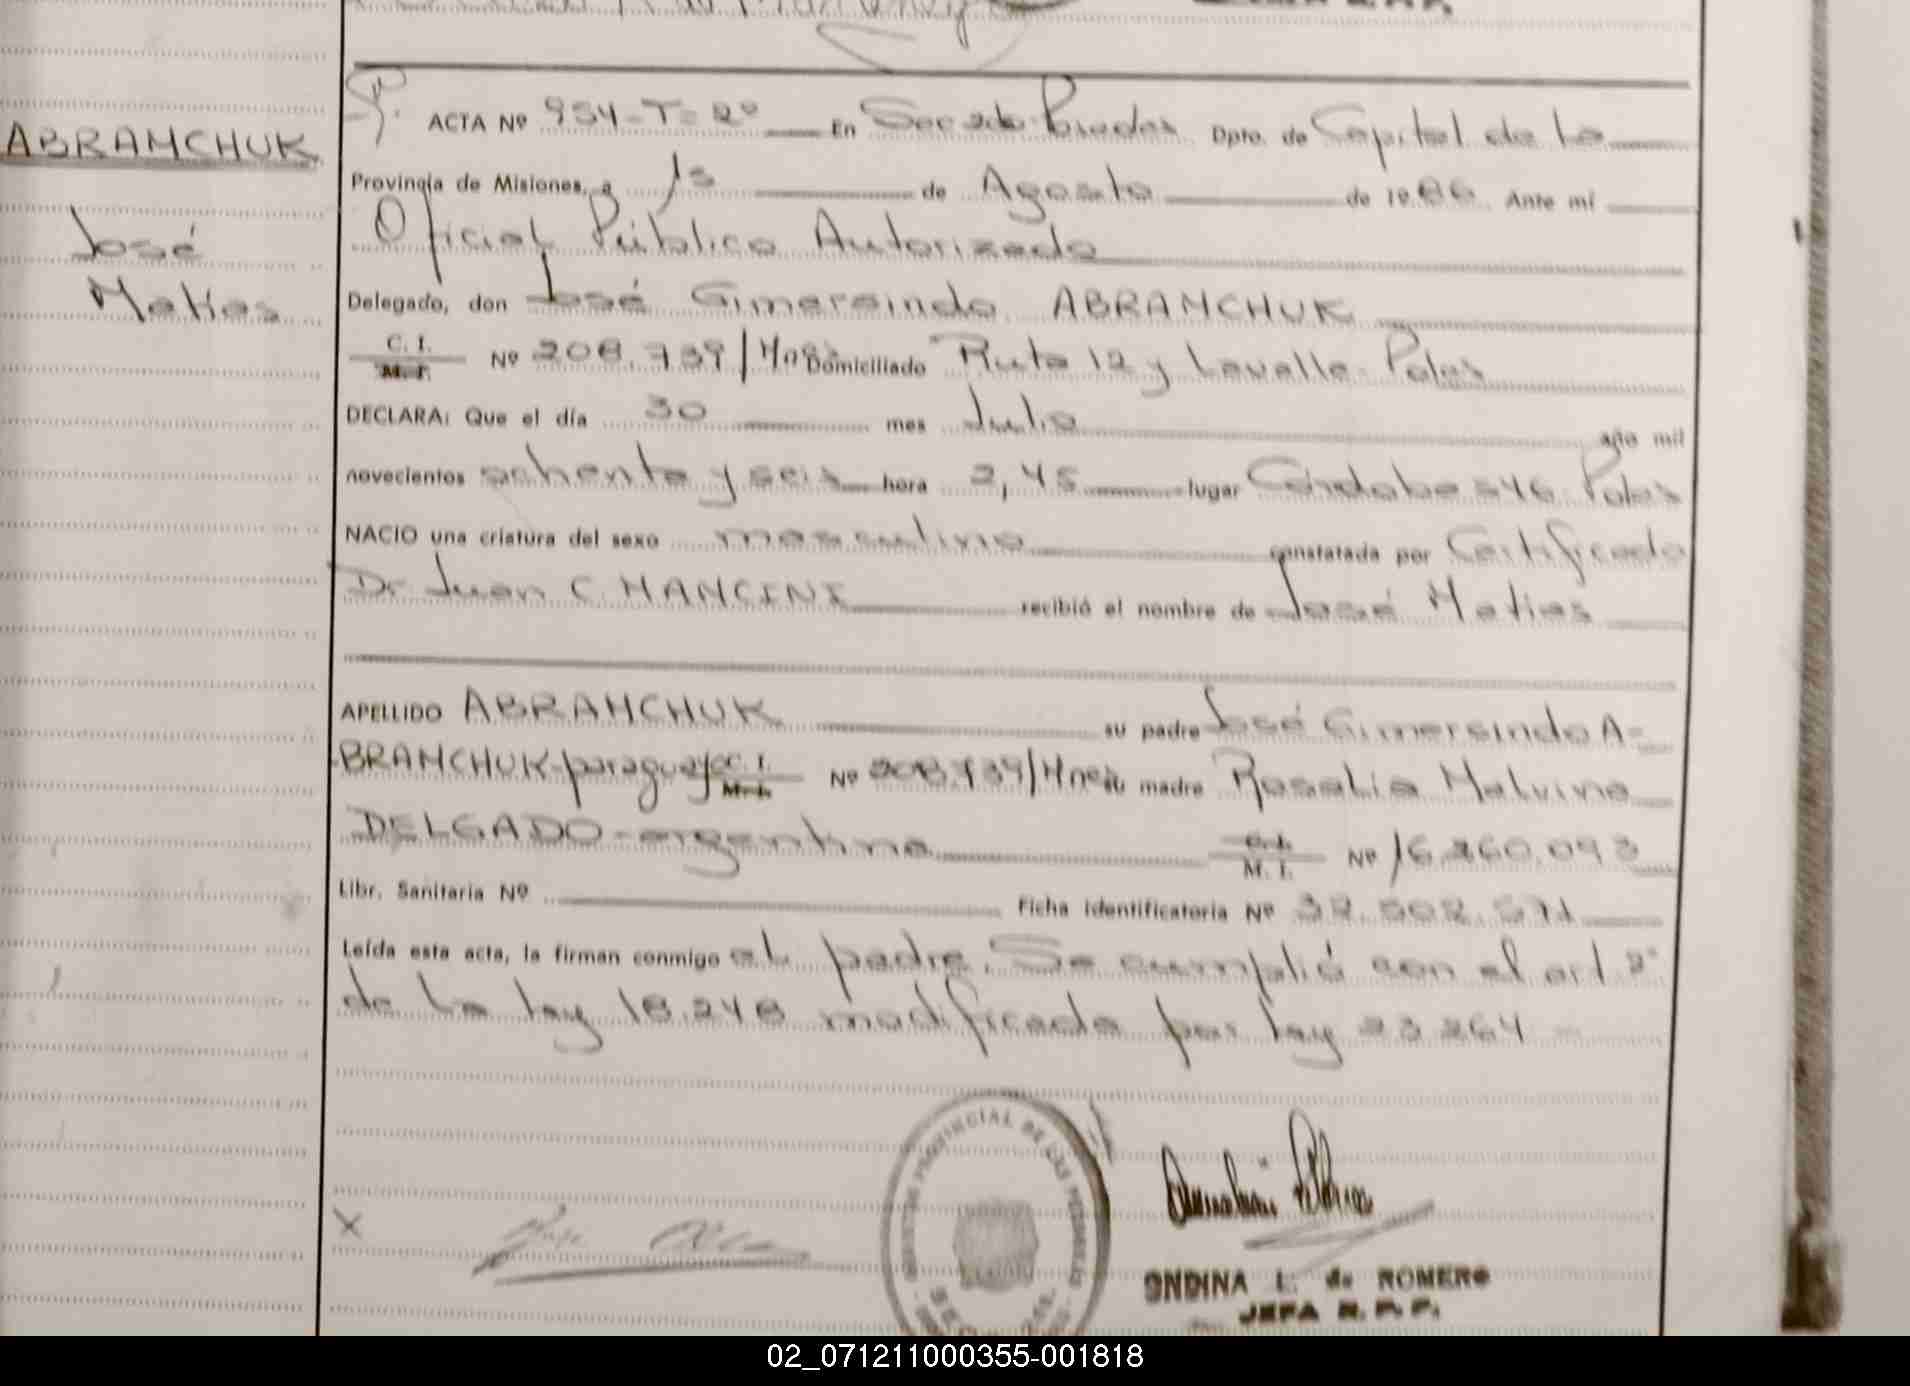 ABRAMCHUK
José
Matías
ACTA Nº 954-T=2º En Sec 2da Posadas Dpto. de Capital de la
Provincia de Misiones, a 1s de Agosto de 1986 Ante mí
Oficial Público Autorizado
Delegado, don José Gimersindo ABRAMCHUK
C. I.
M. I. Nº 208.739/Mnes Domiciliado Ruta 12 y Lavalle-Pdas
DECLARA: Que el día 30 mes Julio año mil
novecientos ochenta y seis hora 2,45 lugar Córdoba 546 Pdas
NACIO una criatura del sexo masculino constatada por Certificado
Dr Juan C. MANCINI recibió el nombre de José Matías
APELLIDO ABRAMCHUK su padre José Gimersindo A-
BRAMCHUK-paraguayo C. I.
M. I. Nº 208.739/Mnes su madre Rosalia Malvina
DELGADO-argentina C. I.
M. I. Nº 16.260.093
Libr. Sanitaria Nº Ficha identificatoria Nº 32.502.571
Leída esta acta, la firman conmigo el padre. Se cumplió con el art 2º
de la ley 18.248 modificada por ley 23264
PROVINCIAL DE LAS PERSONAS
X
ONDINA L. de ROMERO
JEFA R. P. P.
02_071211000355-001818